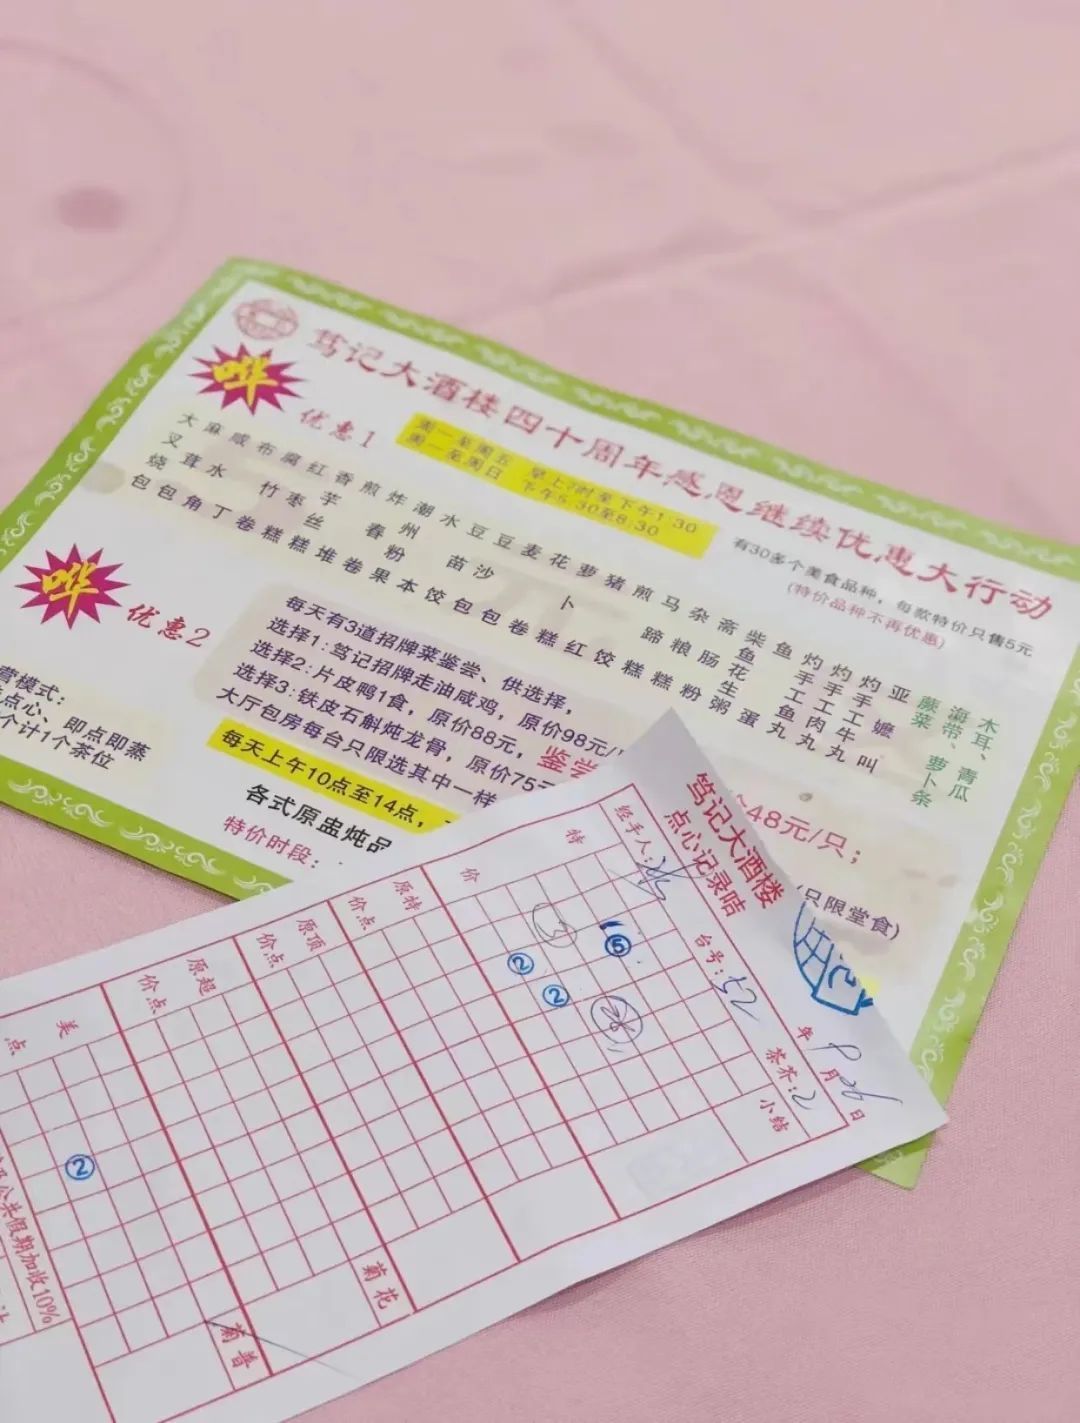 笃记大酒楼四十周年感恩继续优惠大行动
哗
优惠1
周一至周五 早上7时至下午1:30
周一至周日 下午5:30至8:30
有30多个美食品种,每款特价只售5元
(特价品种不再优惠)
大叉烧包
麻茸包
咸水角
布丁
腐竹卷
红枣糕
香芋丝糕
煎堆
炸春卷
潮州粉果
水本
豆苗饺
豆沙包
麦包
花卷
萝卜糕
猪红
煎饺
马蹄糕
杂粮糕
斋肠粉
柴鱼花生粥
鱼蛋
灼手工鱼丸
灼手工肉丸
灼手工牛丸
亚嬷叫
蕨菜
海带、萝卜条
木耳、青瓜
哗
优惠2
每天有3道招牌菜鉴尝、供选择,
选择1:笃记招牌走油咸鸡,原价98元/
选择2:片皮鸭1食,原价88元,鉴尝
48元/只;
选择3:铁皮石斛炖龙骨,原价75元
大厅包房每台只限选其中一样
(只限堂食)
每天上午10点至14点,
各式原盅炖品
特价时段:
营模式:
点心、即点即蒸
个计1个茶位
笃记大酒楼
点心记录咭
年 9 月 26 日
经手人:
台号:52
茶芥:2
小结
特价
特点
原价
顶点
原价
超点
原价
美点
⑤
②
②
②
菊花
菊普
公众假期加收10%